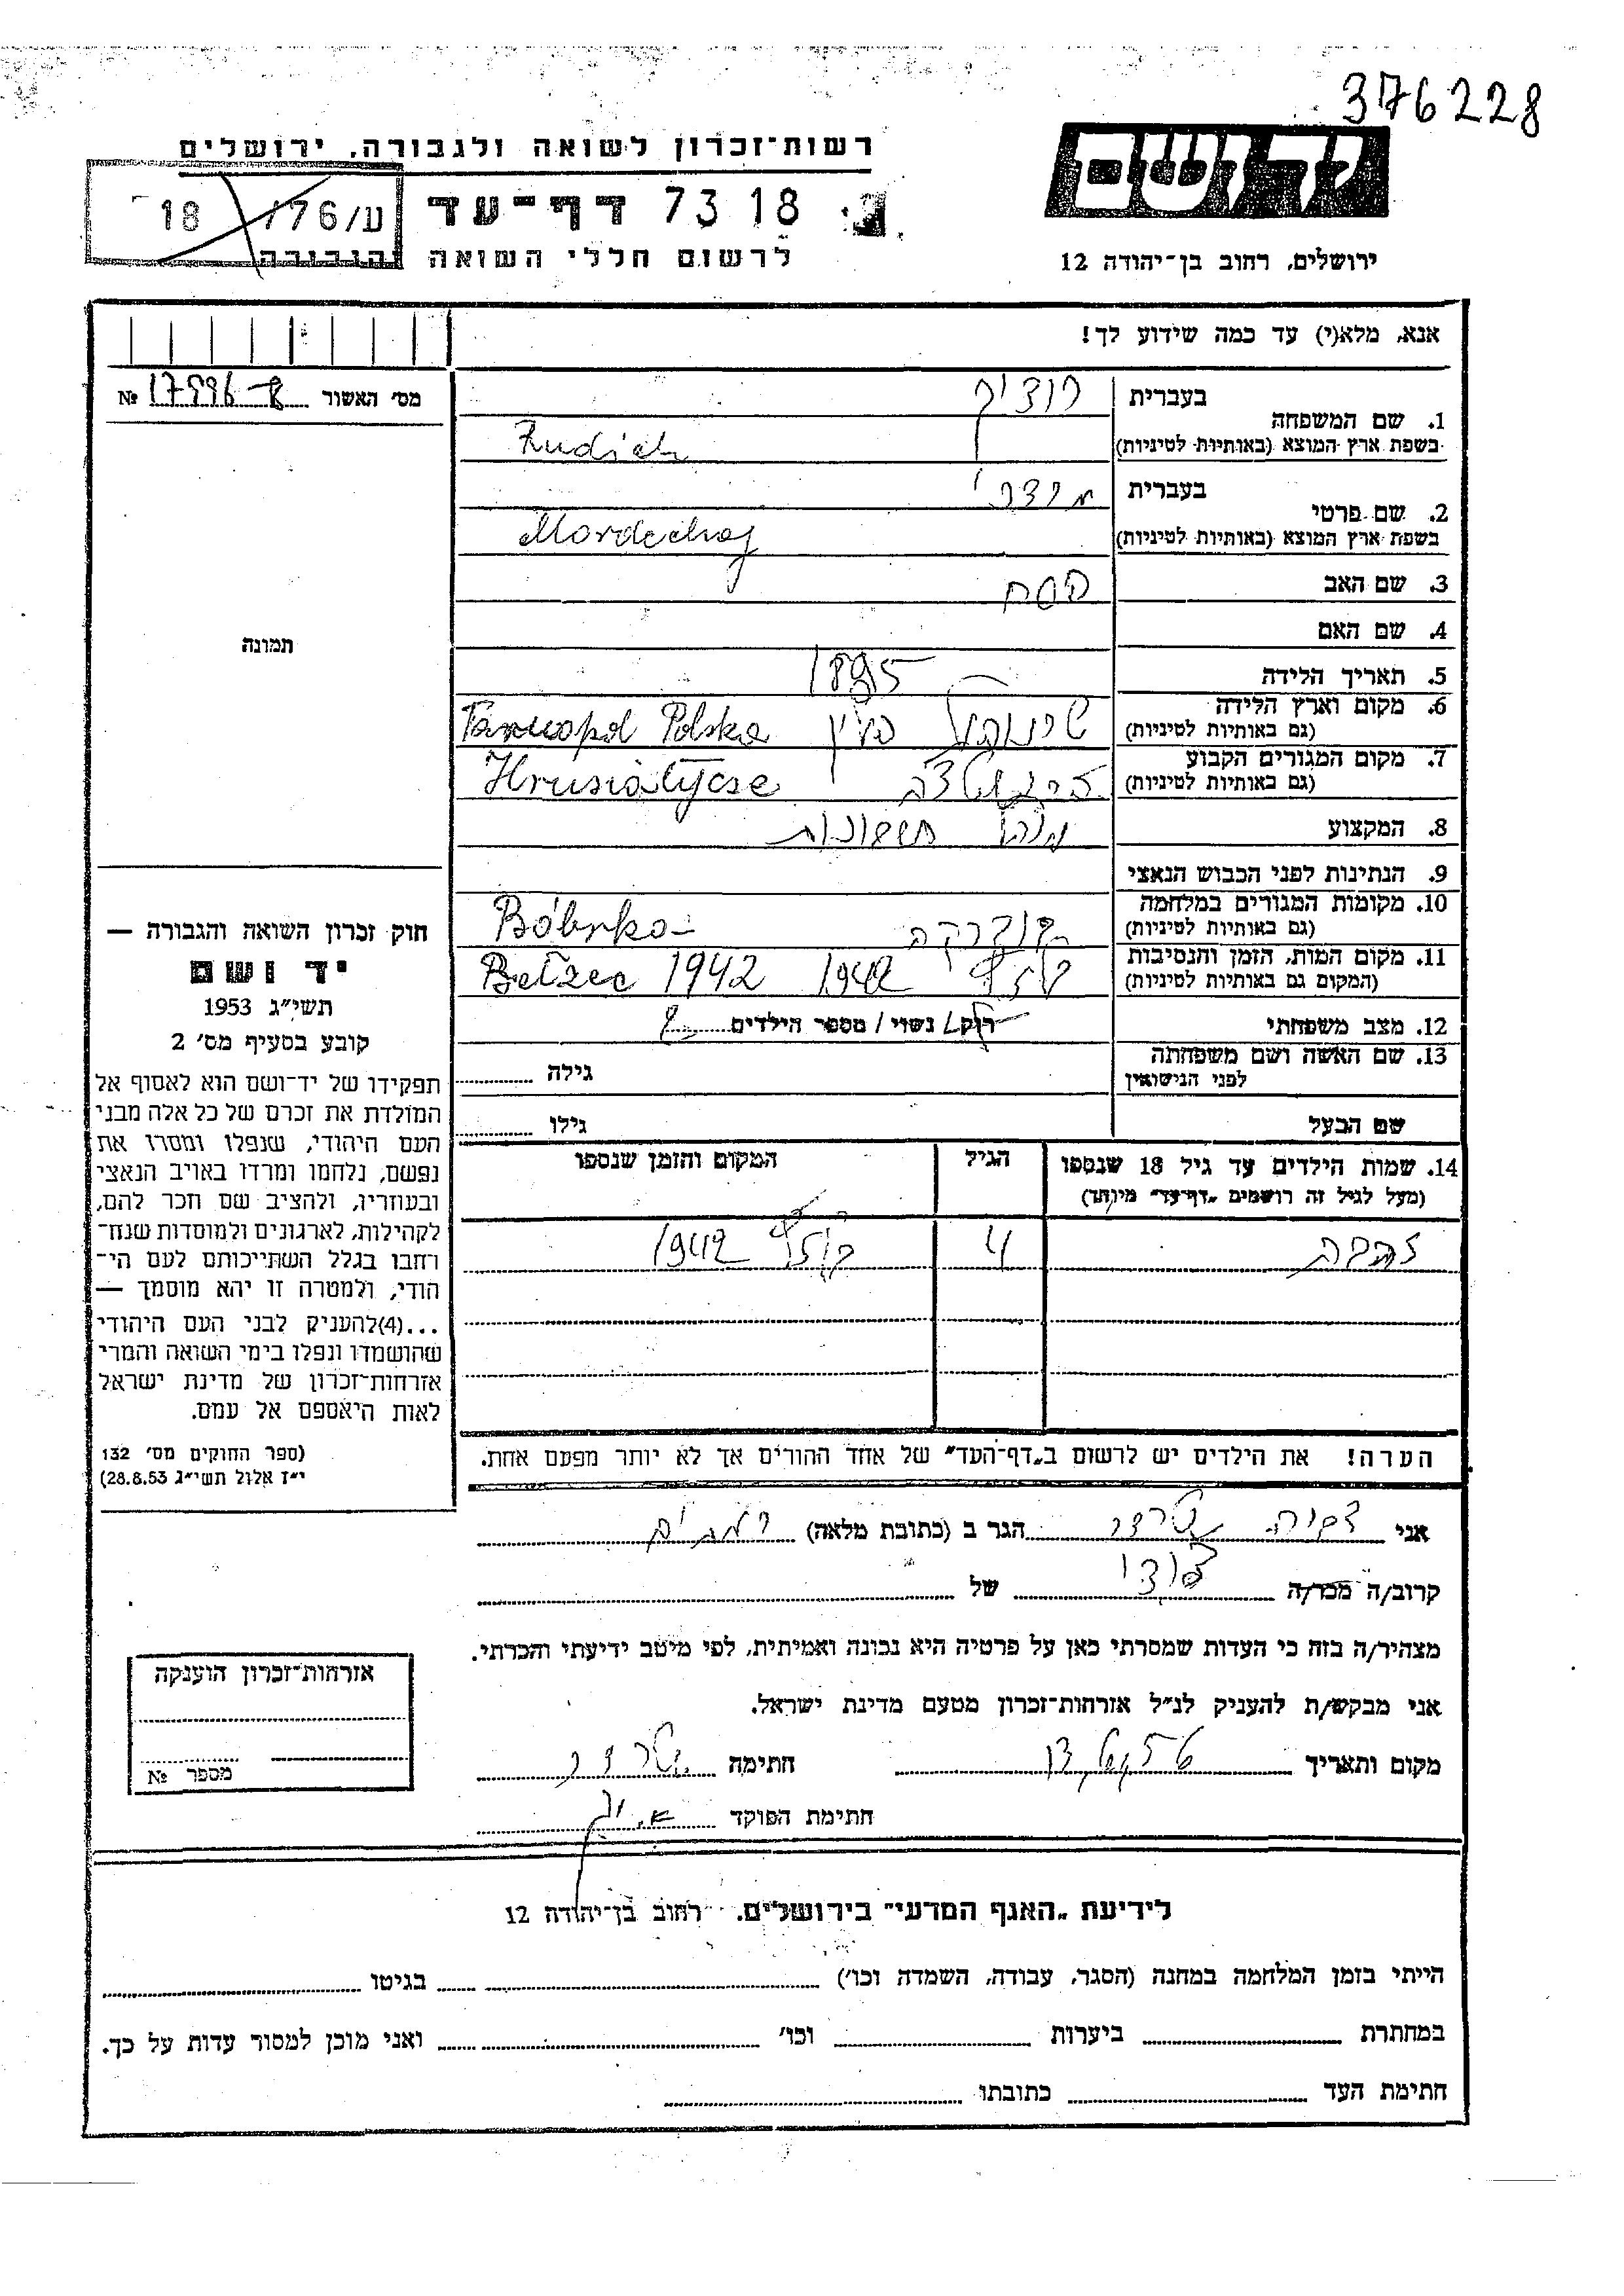 376228
יד ושם
רשות־זכרון לשואה ולגבורה, ירושלים
דף־עד 7318
ע/76/ 18
לרשום חללי השואה והגבורה
ירושלים, רחוב בן־יהודה 12
אנא, מלא(י) עד כמה שידוע לך!
מס׳ האשור №
1. שם המשפחה
בעברית רודיך
בשפת ארץ המוצא (באותיות לטיניות) Rudich
2. שם פרטי
בעברית מרדכי
בשפת ארץ המוצא (באותיות לטיניות) Mordechaj
3. שם האב פסח
4. שם האם
5. תאריך הלידה 1895
6. מקום וארץ הלידה
(גם באותיות לטיניות) טרנופול פולין Tarnopol Polska
7. מקום המגורים הקבוע
(גם באותיות לטיניות)
8. המקצוע מנהל חשבונות
9. הנתינות לפני הכבוש הנאצי
10. מקומות המגורים במלחמה
(גם באותיות לטיניות) בוברקה Bóbrka
11. מקום המות, הזמן והנסיבות
(המקום גם באותיות לטיניות) 1942 Bełzec 1942
12. מצב משפחתי רווק/ נשוי / מספר הילדים
13. שם האשה ושם משפחתה
לפני הנישואין
גילה
שם הבעל גילו
14. שמות הילדים עד גיל 18 שנספו
(מעל לגיל זה רושמים „דף־עד״ מיוחד)
הגיל
המקום והזמן שנספו
4 1942
הערה! את הילדים יש לרשום ב„דף־העד״ של אחד ההורים אך לא יותר מפעם אחת.
תמונה
חוק זכרון השואה והגבורה —
יד ושם
תשי״ג 1953
קובע בסעיף מס׳ 2
תפקידו של יד־ושם הוא לאסוף אל
המולדת את זכרם של כל אלה מבני
העם היהודי, שנפלו ומסרו את
נפשם, נלחמו ומרדו באויב הנאצי
ובעוזריו, ולהציב שם וזכר להם,
לקהילות, לארגונים ולמוסדות שנח־
רחבו בגלל השתייכותם לעם הי־
הודי, ולמטרה זו יהא מוסמך —
...(4)להעניק לבני העם היהודי
שהושמדו ונפלו בימי השואה והמרי
אזרחות־זכרון של מדינת ישראל
לאות היאספם אל עמם.
(ספר החוקים מס׳ 132
י״ז אלול תשי״ג 28.8.53)
אני הגר ב (כתובת מלאה)
קרוב/ה מכר/ה דודי של
מצהיר/ה בזה כי העדות שמסרתי כאן על פרטיה היא נכונה ואמיתית, לפי מיטב ידיעתי והכרתי.
אני מבקש/ת להעניק לנ״ל אזרחות־זכרון מטעם מדינת ישראל.
מקום ותאריך חתימה
חתימת הפוקד
אזרחות־זכרון הוענקה
מספר №
לידיעת „האגף המדעי״ בירושלים, רחוב בן־יהודה 12
הייתי בזמן המלחמה במחנה (הסגר, עבודה, השמדה וכו׳) בגיטו
במחתרת ביערות וכו׳ ואני מוכן למסור עדות על כך.
חתימת העד כתובתו